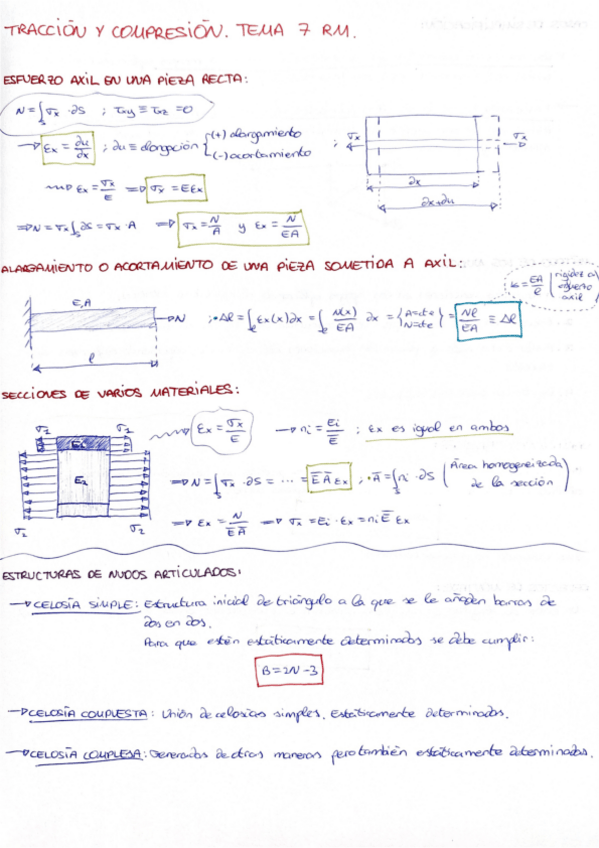 TRACCIÓN Y COMPRESIÓN. TEMA 7 RM.
ESFUERZO AXIL EN UNA PIEZA RECTA:
N = ∫s σx · ∂S ; τxy ≡ τxz = 0
εx = ∂u/∂x ; ∂u ≡ elongación { (+) alargamiento
(-) acortamiento
σx
σx
∂x
∂x+∂u
εx = σx/E ⇒ σx = E εx
⇒ N = σx ∫s ∂S = σx · A ⇒ σx = N/A y εx = N/EA
ALARGAMIENTO O ACORTAMIENTO DE UNA PIEZA SOMETIDA A AXIL:
k = EA/l ( rigidez al esfuerzo axil
E, A
N
l
; · Δl = ∫l εx(x) ∂x = ∫l N(x)/EA ∂x = { A = cte
N = cte } = Nl/EA ≡ Δl
SECCIONES DE VARIOS MATERIALES:
σ1
σ1
E1
E2
σ2
σ2
εx = σx/E → ni = Ei/E̅ ; εx es igual en ambos
⇒ N = ∫s σx · ∂S = ... = E̅ A̅ εx ; · A̅ = ∫s ni · ∂S ( Área homogeneizada de la sección )
⇒ εx = N/E̅A̅ ⇒ σx = Ei · εx = ni E̅ εx
ESTRUCTURAS DE NUDOS ARTICULADOS:
→ CELOSÍA SIMPLE: Estructura inicial de triángulo a la que se le añaden barras de
dos en dos.
Para que estén estáticamente determinados se debe cumplir:
B = 2N - 3
→ CELOSÍA COMPUESTA: Unión de celosías simples. Estáticamente determinados.
→ CELOSÍA COMPLEJA: Generados de otras maneras pero también estáticamente determinados.